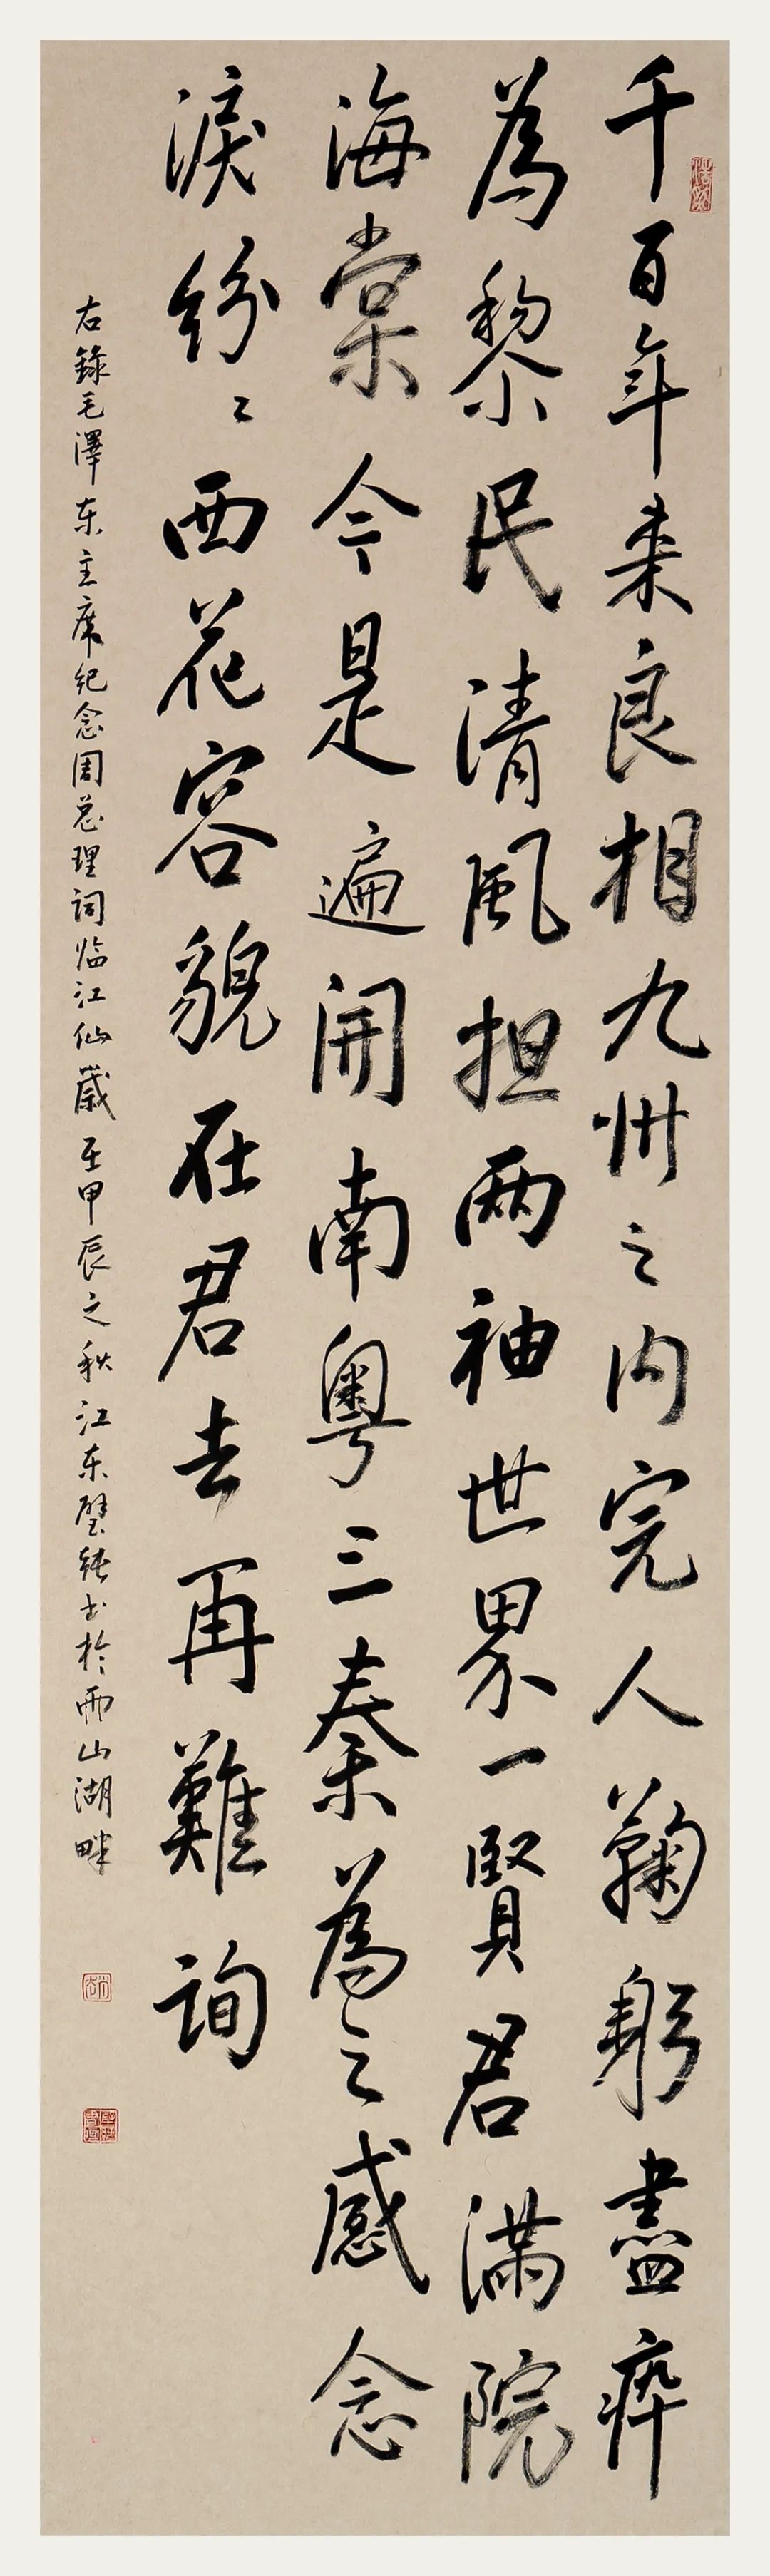 千百年来良相九州之内完人鞠躬盡瘁
為黎民清風担两袖世界一賢君满院
海棠今是遍開南粤三秦為之感念
淚紛〻西花容貌在君去再難詢
右錄毛澤东主席纪念周总理词临江仙歲在甲辰之秋江东璧书於雨山湖畔